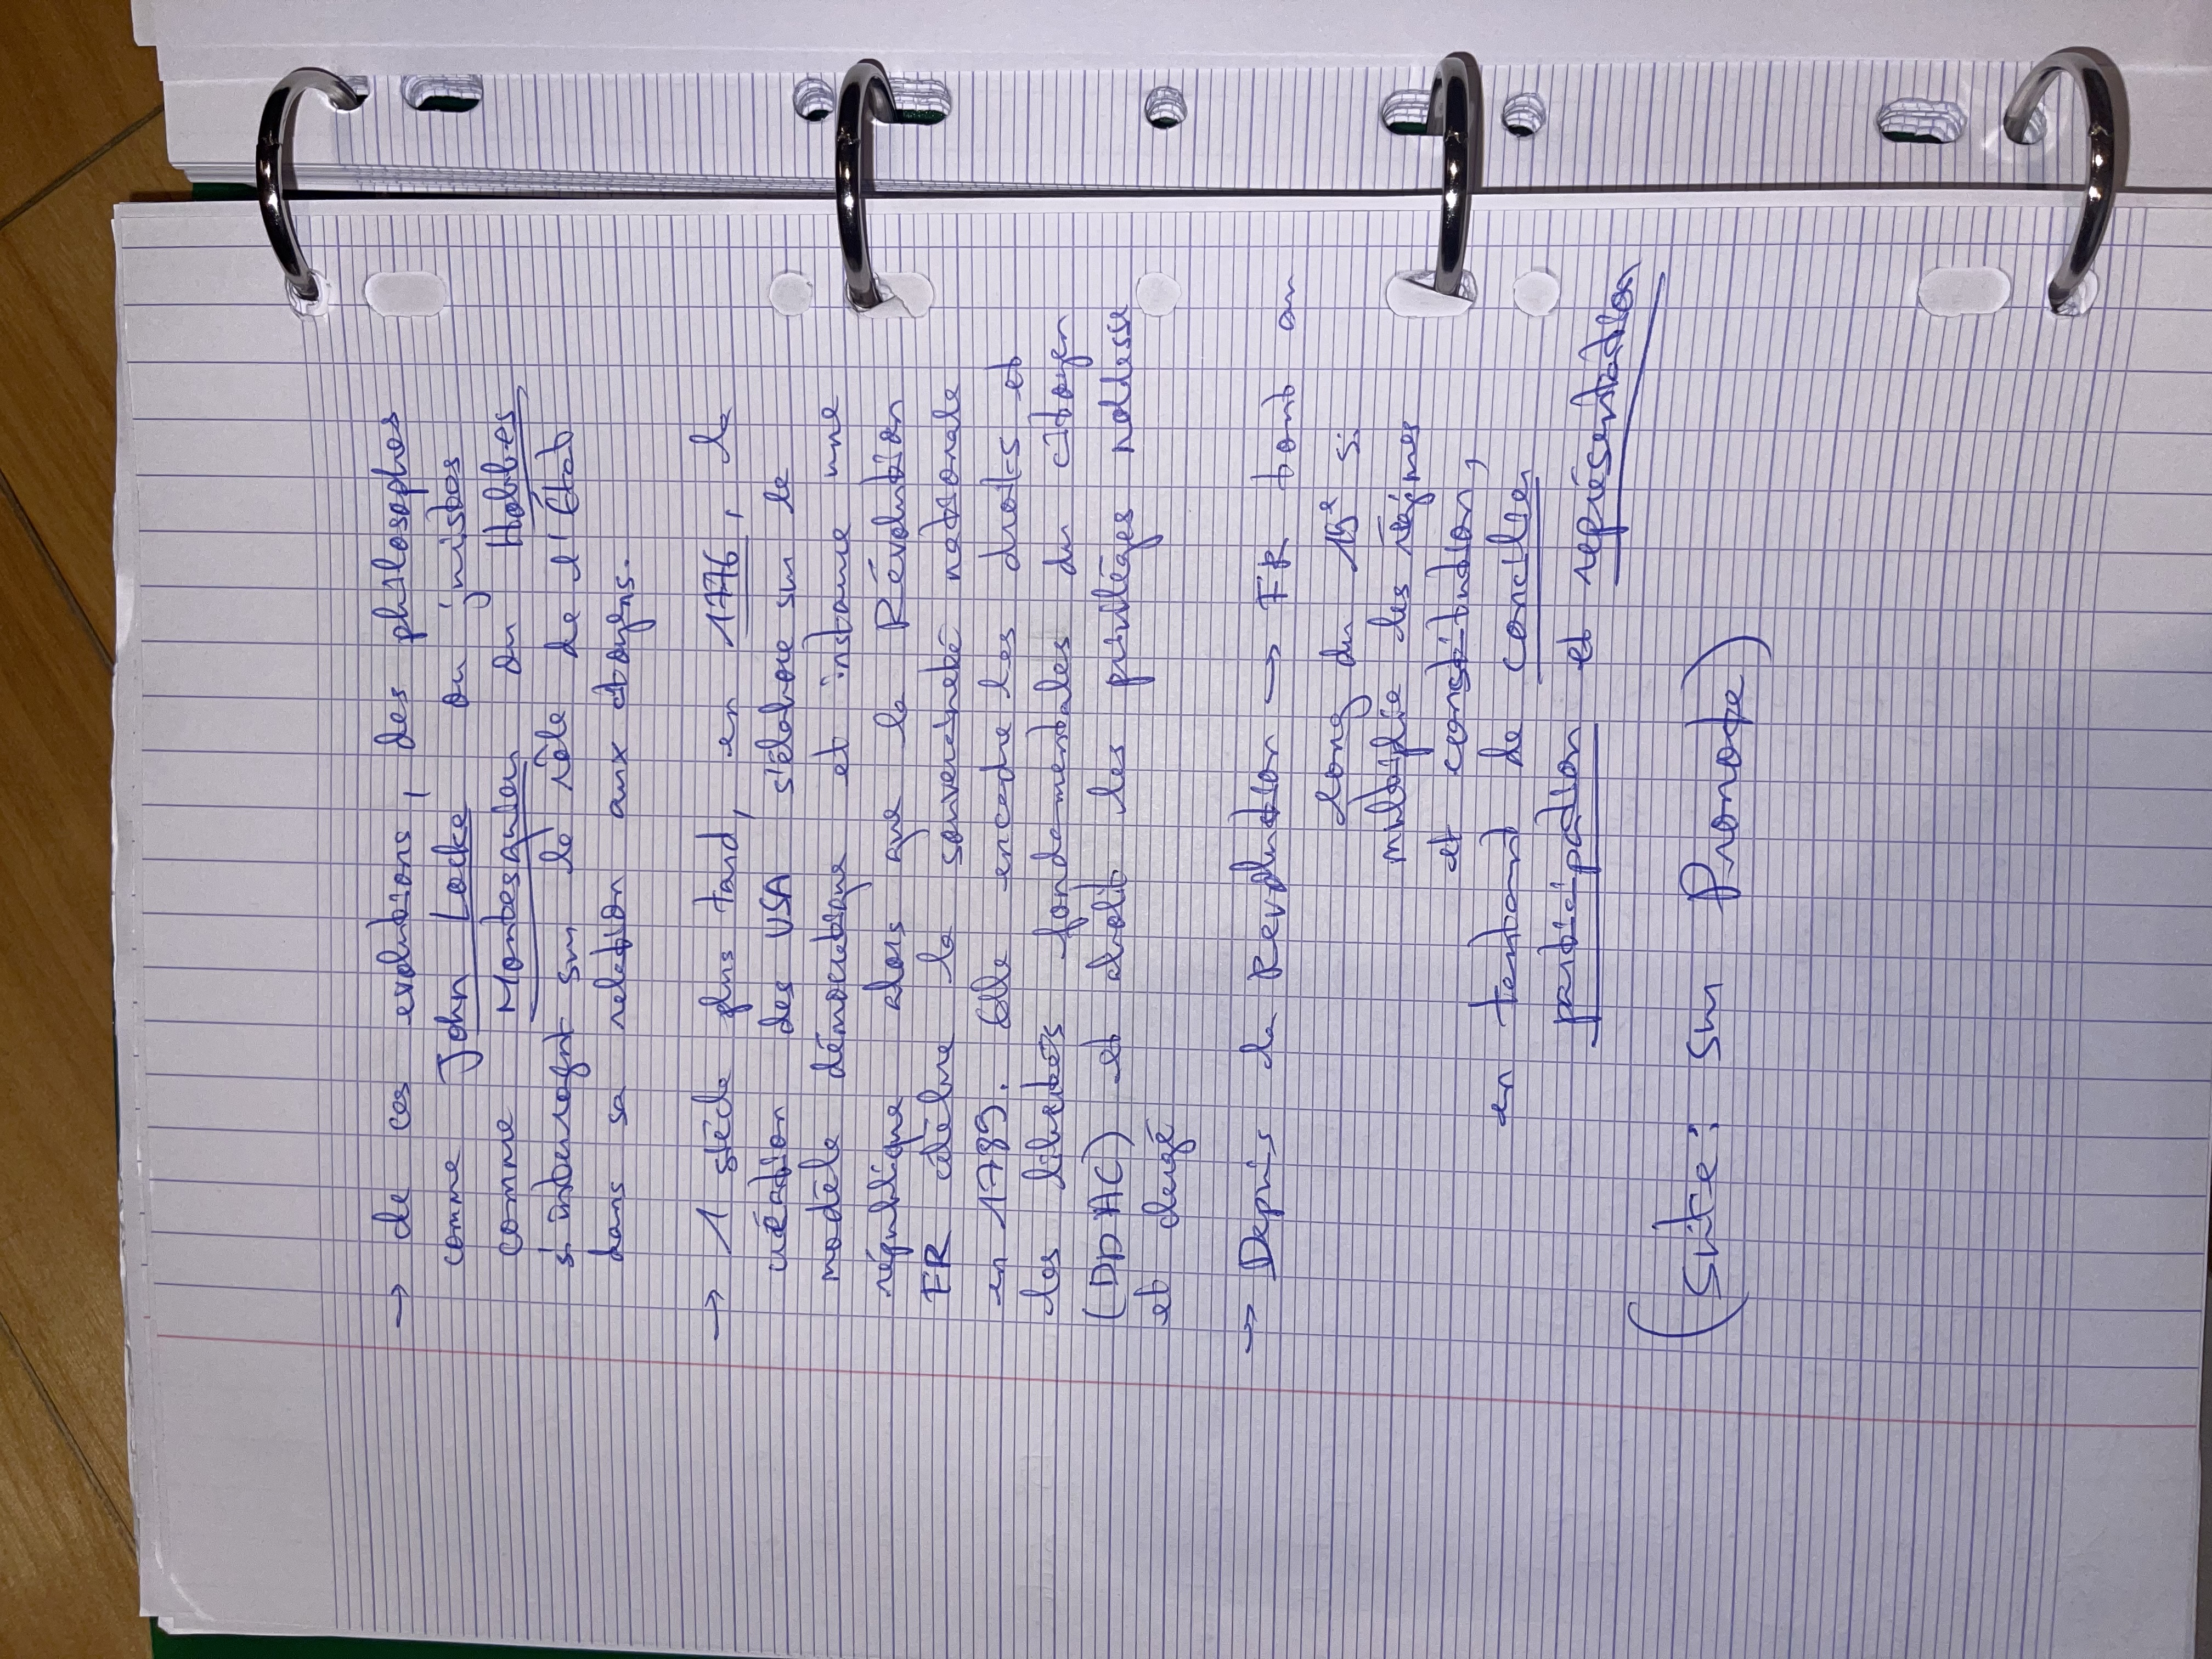 → de ces evolutions, des philosophes
comme John Locke ou juistes
comme Montesquieu ou Hobbes
s'interrogent sur le rôle de l'État
dans sa relation aux citoyens.
→ 1 siècle plus tard, en 1776, la
création des USA s'élabore sur le
modèle démocratique et instaure une
république alors que la Révolution
FR célèbre la souveraineté nationale
en 1789. Elle encadre les droits et
les libertés fondamentales du citoyen
(DDHC) et abolit les privilèges noblesse
et clergé
→ Depuis la Revolution → FR tout au
long du 19e s.
multiplie les régimes
et constitution,
en tentant de concilier
participation et représentation
(Suite : sur Pronote)